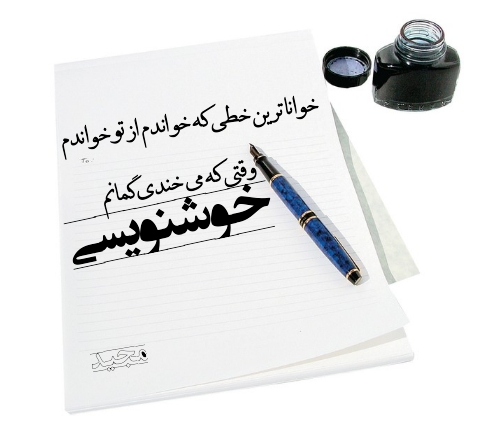 خواناترین خطی که خواندم از تو خواندم
وقتی که می خندی گمانم
خوشنویسی
مجید